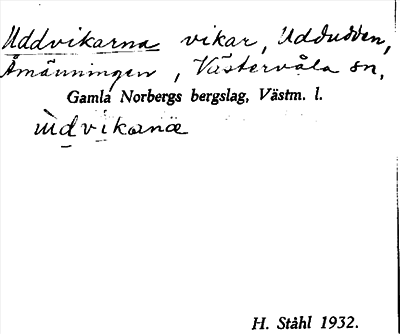 Uddvikarna vikar, Uddudden,
Åmänningen, Västervåla sn,
Gamla Norbergs bergslag, Västm. l.
ùdvikanæ
H. Ståhl 1932.